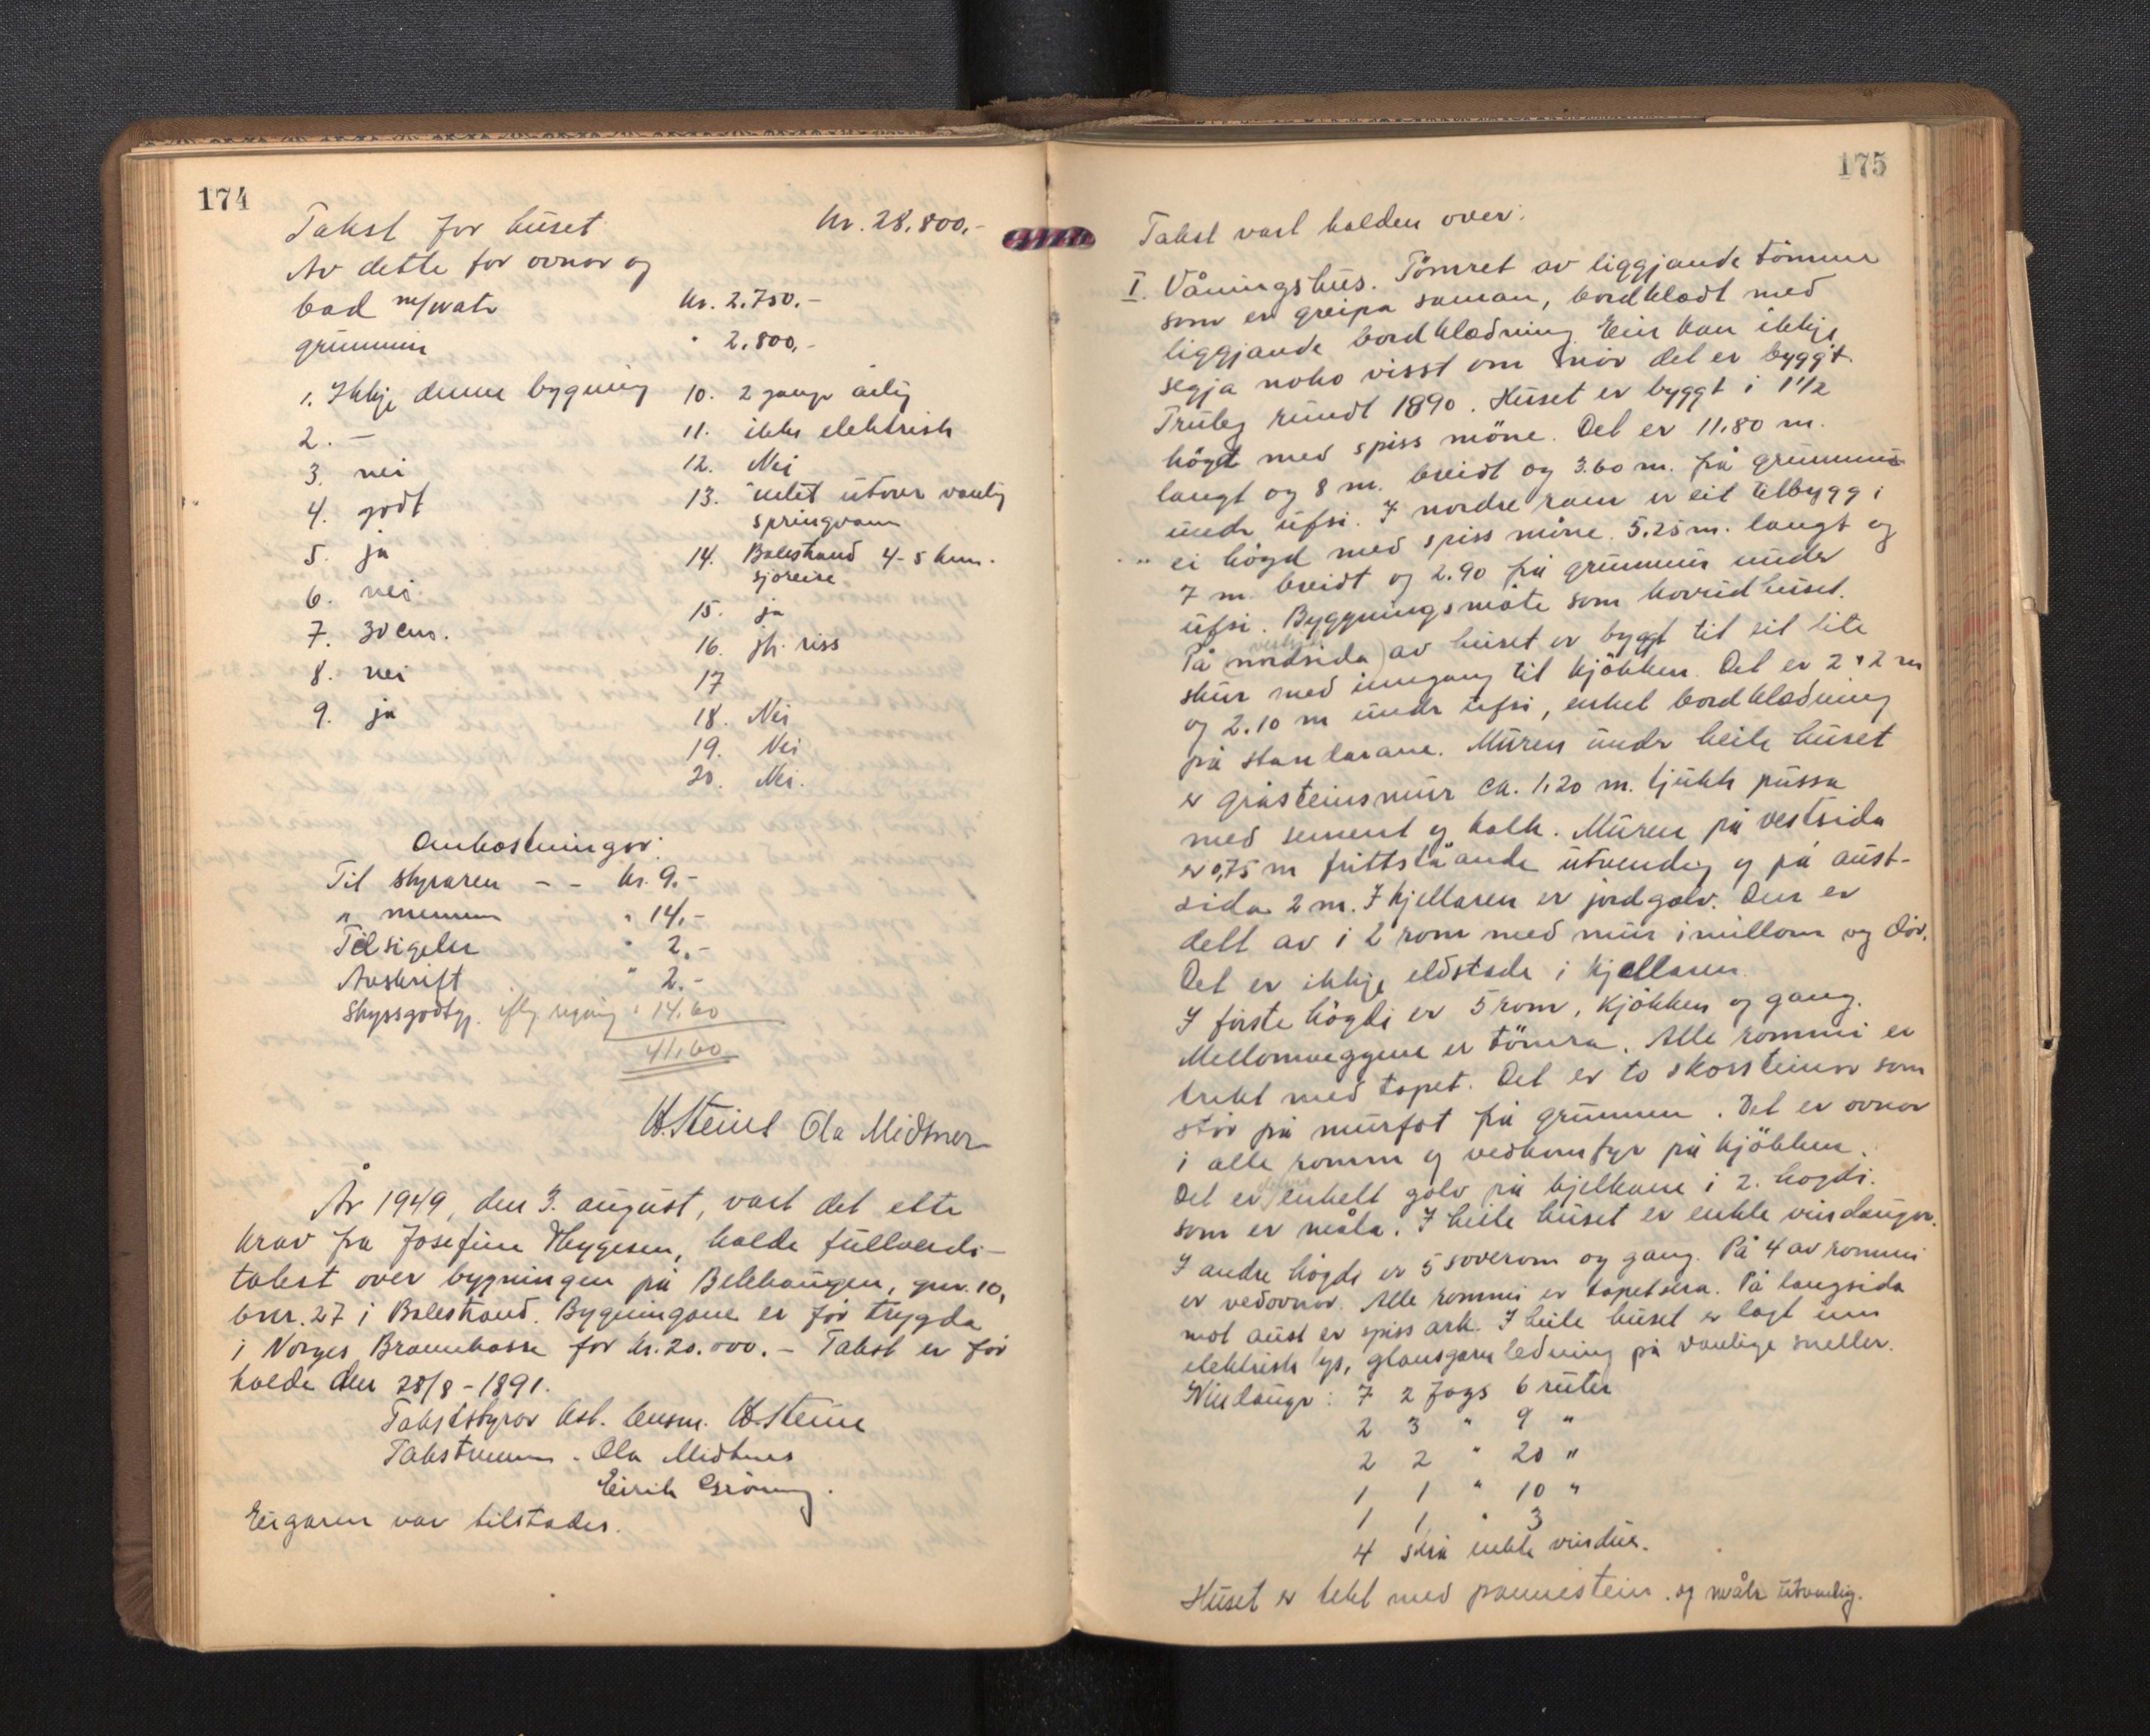 174
Takst for huset kr. 28.800,-
Av dette for ovnar og
bad m/vatn kr. 2.750.-
grunnmur " 2.800,-
1. Ikkje denne bygning
2. —
3. nei
4. godt
5. ja
6. nei
7. 30 cm.
8. nei
9. ja
10. 2 gangr årlig
11. ikke elektrisk
12. Nei
13. intet utover vanlig
springvann
14. Balestrand 4-5 km.
sjøreise
15. ja
16. jfr. riss
17
18. Nei
19. Nei
20. Nei.
Omkostningar:
Til styraren - - kr. 9.-
" mennene " 14.-
Tilsigelse " 2.-
Avskrift " 2.-
Skyssgodtgj. iflg. regning " 14.60
41.60
O. Steine Ola Midtnes
År 1949, den 3. august, vart det etter
krav fra Josefine Thygesen, halde fullverdi-
takst over bygningen på Belehaugen, gnr. 10,
bnr. 27 i Balestrand. Bygningane er før trygda
i Norges Brannkasse for kr. 20.000.- Takst er før
halde den 28/8 - 1891.
Takststyrar kst. lensm. O. Steine
Takstmenn. Ola Midtnes
Eirik Grøning.
Eigaren var tilstades.
175
Takst vart halden over:
I. Våningshus. Tømret av liggjande tömmer
som er greipa saman, bordklædt med
liggjande bordklædning. Ein kan ikkje
segja noko visst om når det er byggt.
Truleg rundt 1890. Huset er byggt i 1 1/2
högd med spiss möne. Det er 11,80 m.
langt og 8 m. breidt og 3.60 m. frå grunnmur
under ufsi. I nordre ... er eit tilbygg i
ei högd med spiss möne. 5.25 m. langt og
7 m. breidt og 2.90 frå grunnmur under
ufsi. Byggningsmåte som hovudhuset.
På nordsida av huset er byggt til eit lite
skur med inngang til kjökken. Det er 2 x 2 m
og 2.10 m under ufsi, enkel bordklædning
på standarane. Muren under heile huset
er gråsteinsmur ca. 1.20 m. tjukk pussa
med sement og kalk. Muren på vestsida
er 0,75 m frittståande utvendig og på aust-
sida 2 m. I kjellaren er jordgolv. Den er
delt av i 2 rom med mur imillom og dör.
Det er ikkje eldstade i kjellaren.
I første högdi er 5 rom, kjökken og gang.
Mellomveggene er tömra. Alle rommi er
trekt med tapet. Det er to skorsteinar som
står på murfot frå grunnen. Det er ovnar
i alle romm og vedkomfyr på kjökken.
Det er enkelt golv på bjelkane i 2. högdi.
som er måla. I heile huset er enkle vindaugor.
I andre högdi er 5 soverom og gang. På 4 av rommi
er vedovnar. Alle rommi er tapetsera. På langsida
mot aust er spiss ark. I heile huset er lagt inn
elektrisk lys, glansgarnledning på vanlige sneller.
Vindaugr: 7 2 fags 6 ruter
2 3 " 9 "
2 2 " 20 "
1 1 " 10 "
1 1 " 3
4 små enkle vindur.
Huset er tekt med pannestein. og måla utvendig.